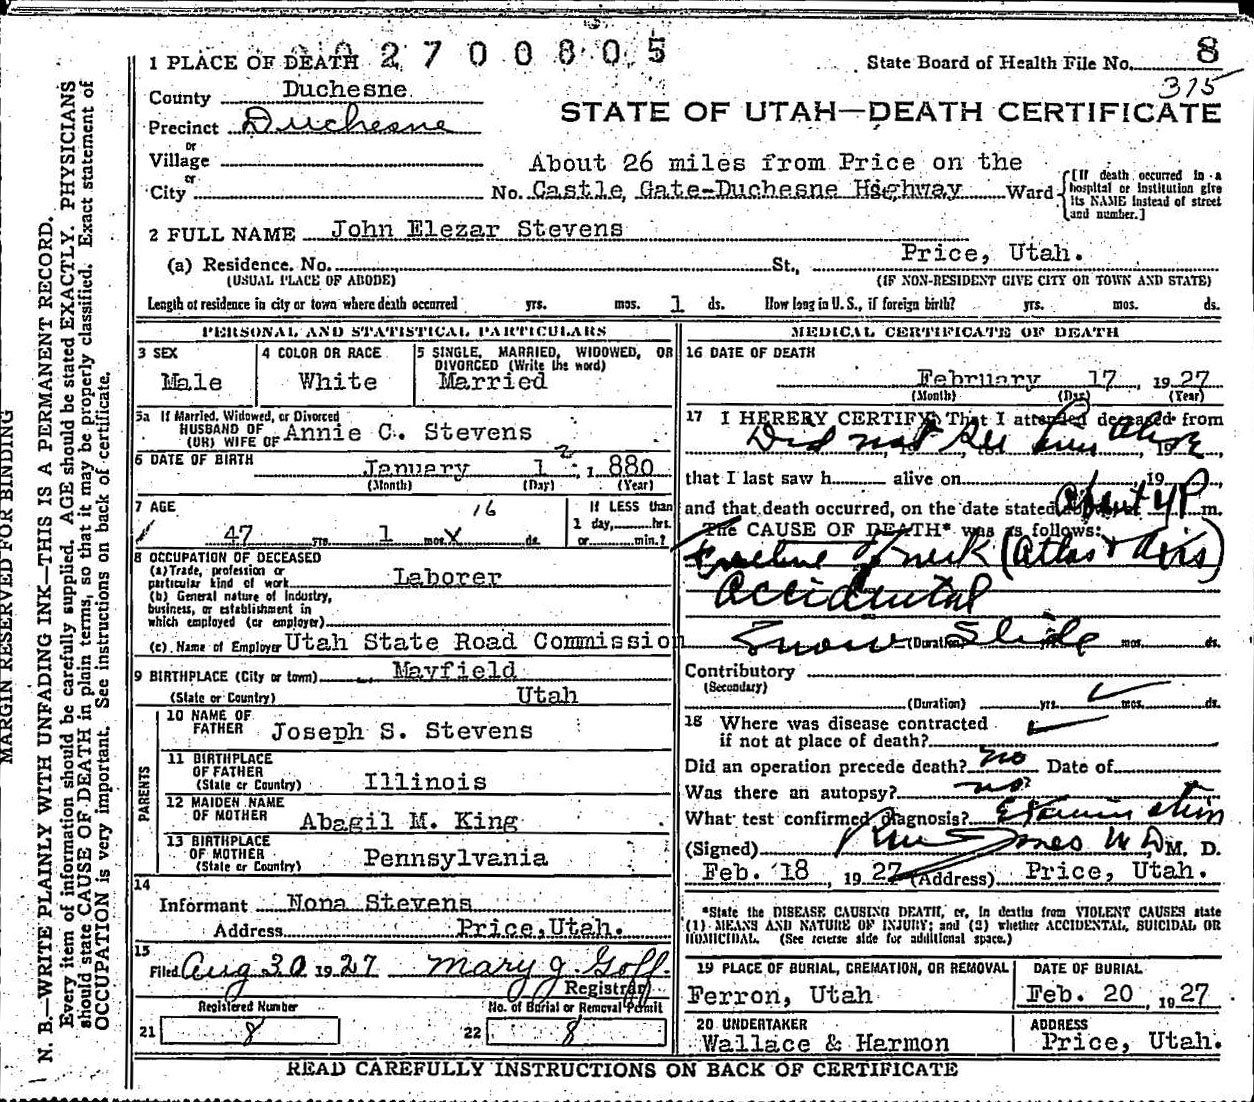 2700805
1 PLACE OF DEATH
State Board of Health File No. 8
375
County Duchesne
STATE OF UTAH—DEATH CERTIFICATE
Precinct Duchesne
or
Village
About 26 miles from Price on the
or
City No. Castle Gate-Duchesne Highway Ward
[If death occurred in a hospital or institution give its NAME instead of street and number.]
2 FULL NAME John Elezar Stevens
(a) Residence. No. St., Price, Utah.
(USUAL PLACE OF ABODE) (IF NON-RESIDENT GIVE CITY OR TOWN AND STATE)
Length of residence in city or town where death occurred yrs. mos. 1 ds. How long in U.S., if foreign birth? yrs. mos. ds.
PERSONAL AND STATISTICAL PARTICULARS
3 SEX
Male
4 COLOR OR RACE
White
5 SINGLE, MARRIED, WIDOWED, OR
DIVORCED (Write the word)
Married
5a If Married, Widowed, or Divorced
HUSBAND OF
(OR) WIFE OF Annie C. Stevens
6 DATE OF BIRTH
January 1 2, 1880
(Month) (Day) (Year)
7 AGE
16
47 yrs. 1 mos. x ds.
If LESS than
1 day, hrs.
or min.?
8 OCCUPATION OF DECEASED
(a) Trade, profession or
particular kind of work Laborer
(b) General nature of industry,
business, or establishment in
which employed (or employer)
(c) Name of Employer Utah State Road Commission
9 BIRTHPLACE (City or town) Mayfield
(State or Country) Utah
PARENTS
10 NAME OF
FATHER Joseph S. Stevens
11 BIRTHPLACE
OF FATHER
(State or Country) Illinois
12 MAIDEN NAME
OF MOTHER Abagil M. King
13 BIRTHPLACE
OF MOTHER
(State or Country) Pennsylvania
14
Informant Nona Stevens
Address Price, Utah.
15
Filed Aug 30 1927 Mary J. Goff
Registrar
Registered Number
21 8
No. of Burial or Removal Permit
22 8
MEDICAL CERTIFICATE OF DEATH
16 DATE OF DEATH
February 17, 1927
(Month) (Day) (Year)
17 I HEREBY CERTIFY, That I attended deceased from
Did not see him alive, 19
that I last saw h alive on 19
and that death occurred, on the date stated about 4 P m.
The CAUSE OF DEATH* was as follows:
Fracture of neck (atlas + axis)
Accidental
Snow Slide
(Duration) yrs. mos. ds.
Contributory
(Secondary)
(Duration) yrs. mos. ds.
18 Where was disease contracted
if not at place of death?
Did an operation precede death? no Date of
Was there an autopsy? no
What test confirmed diagnosis? Examination
(Signed) Jones M D M. D.
Feb. 18, 1927 (Address) Price, Utah.
*State the DISEASE CAUSING DEATH, or, in deaths from VIOLENT CAUSES state
(1) MEANS AND NATURE OF INJURY; and (2) whether ACCIDENTAL, SUICIDAL OR
HOMICIDAL. (See reverse side for additional space.)
19 PLACE OF BURIAL, CREMATION, OR REMOVAL
Ferron, Utah
DATE OF BURIAL
Feb. 20, 1927
20 UNDERTAKER
Wallace & Harmon
ADDRESS
Price, Utah.
READ CAREFULLY INSTRUCTIONS ON BACK OF CERTIFICATE
MARGIN RESERVED FOR BINDING
N. B.—WRITE PLAINLY WITH UNFADING INK—THIS IS A PERMANENT RECORD.
Every item of information should be carefully supplied. AGE should be stated EXACTLY. PHYSICIANS
should state CAUSE OF DEATH in plain terms, so that it may be properly classified. Exact statement of
OCCUPATION is very important. See instructions on back of certificate.